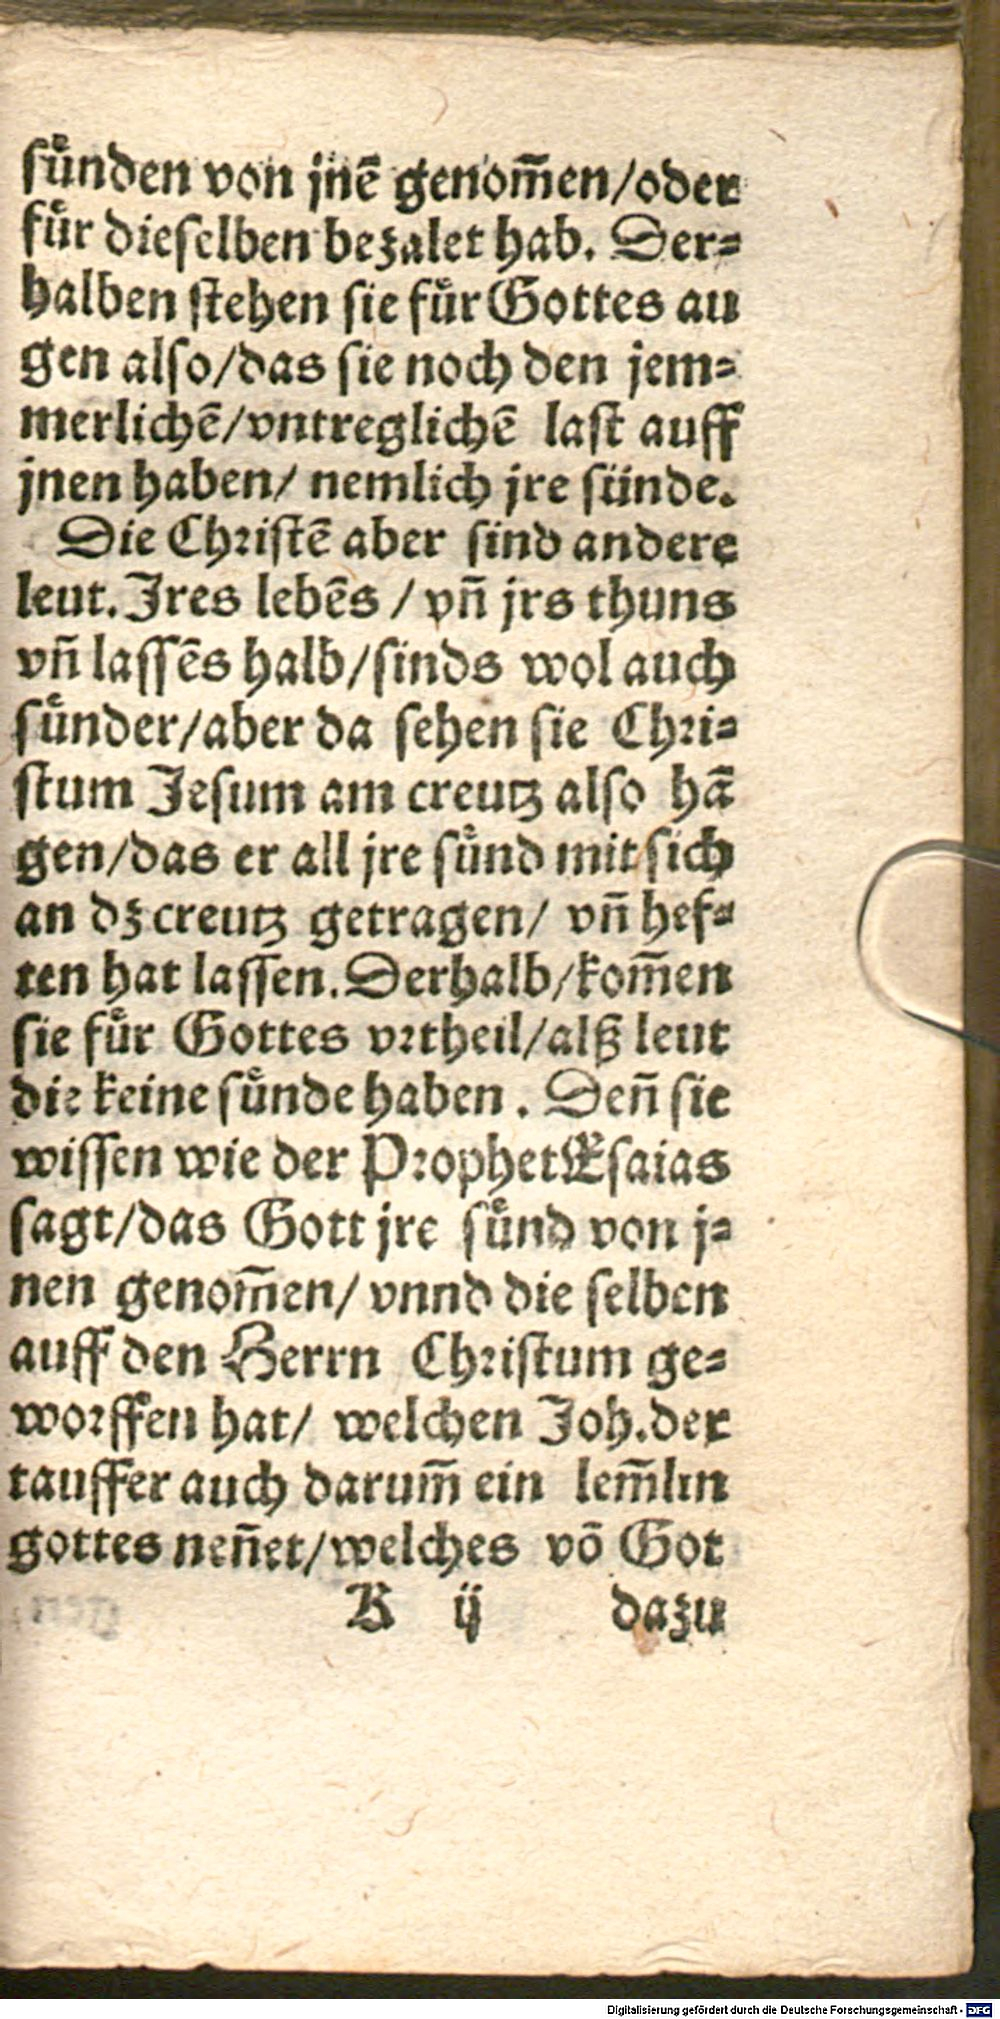 ſuͤnden von jnē genom̄en/oder
fuͤr dieſelben bezalet hab. Der⸗
halben ſtehen ſie fuͤr Gottes au
gen alſo/das ſie noch den jem⸗
merlichē/vntreglichē laſt auff
jnen haben/ nemlich jre ſünde.
Die Chꝛiſtē aber ſind andere
leut. Jres lebēs / vn̄ jrs thuns
vn̄ laſſēs halb/ſinds wol auch
ſuͤnder/aber da ſehen ſie Chꝛi⸗
ſtum Jeſum am creutz alſo hā
gen/das er all jre ſuͤnd mit ſich
an dz creutz getragen/ vn̄ hef⸗
ten hat laſſen. Derhalb/kom̄en
ſie fuͤr Gottes vꝛtheil/alß leut
die keine ſuͤnde haben . Den̄ ſie
wiſſen wie der Pꝛophet Eſaias
ſagt/das Gott jre ſuͤnd von j⸗
nen genom̄en/ vnnd die ſelben
auff den Herrn Chꝛiſtum ge⸗
woꝛffen hat/ welchen Joh.der
tauffer auch darum̄ ein lem̄lin
gottes nen̄et/welches vō Got
K ij dazu
Digitalisierung gefördert durch die Deutsche Forschungsgemeinschaft - DFG